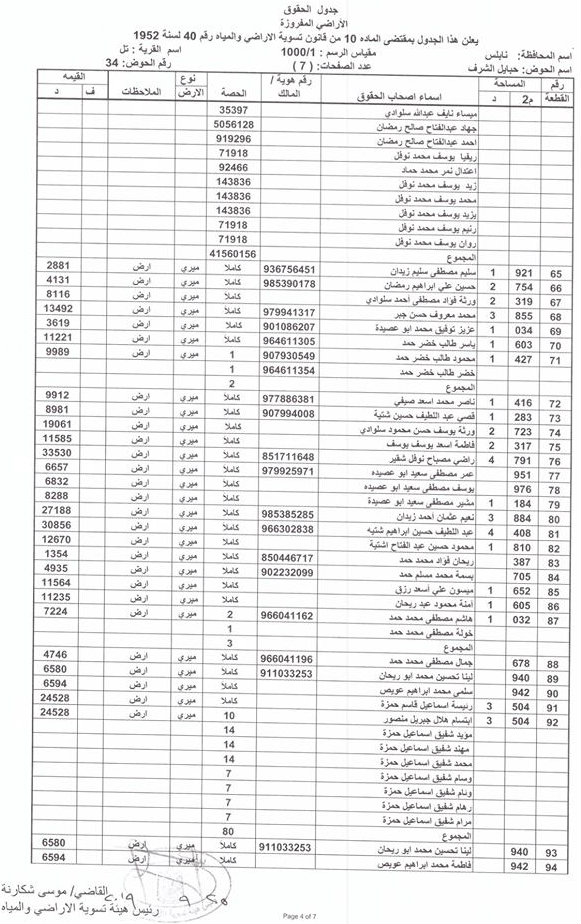 جدول الحقوق
الأراضي المفروزة
يعلن هذا الجدول بمقتضى الماده 10 من قانون تسوية الاراضي والمياه رقم 40 لسنة 1952
اسم المحافظة: نابلس مقياس الرسم : 1000/1 اسم القرية : تل
اسم الحوض : حبايل الشرف عدد الصفحات : ( 7 ) رقم الحوض : 34
رقم القطعة المساحة م2 د اسماء اصحاب الحقوق رقم هوية / المالك الحصة نوع الارض الملاحظات القيمه ف د
ميساء نايف عبدالله سلوادي 35397
جهاد عبدالفتاح صالح رمضان 5056128
احمد عبدالفتاح صالح رمضان 919296
ريفيا يوسف محمد نوفل 71918
اعتدال نمر محمد حماد 92466
زيد يوسف محمد نوفل 143836
محمد يوسف محمد نوفل 143836
يزيد يوسف محمد نوفل 143836
رنيم يوسف محمد نوفل 71918
روان يوسف محمد نوفل 71918
المجموع 41560156
65 921 1 سليم مصطفى سليم زيدان 936756451 كاملا ميري ارض 2881
66 754 2 حسين علي ابراهيم رمضان 985390178 كاملا ميري ارض 4131
67 319 2 ورثة فؤاد مصطفى احمد سلوادي كاملا ميري ارض 8116
68 855 3 محمد معروف حسن جبر 979941317 كاملا ميري ارض 13492
69 034 1 عزيز توفيق محمد ابو عصيدة 901086207 كاملا ميري ارض 3619
70 603 1 ياسر طالب خضر حمد 964611305 كاملا ميري ارض 11221
71 427 1 محمود طالب خضر حمد 907930549 1 ميري ارض 9989
خضر طالب خضر حمد 964611354 1
المجموع 2
72 416 1 ناصر محمد اسعد صيفي 977886381 كاملا ميري ارض 9912
73 283 1 قصي عبد اللطيف حسين شتية 907994008 كاملا ميري ارض 8981
74 723 2 ورثة يوسف حسن محمود سلوادي كاملا ميري ارض 19061
75 317 2 فاطمة اسعد يوسف يوسف كاملا ميري ارض 11585
76 791 4 راضي مصباح نوفل شقير 851711648 كاملا ميري ارض 33530
77 951 عمر مصطفى سعيد ابو عصيده 979925971 كاملا ميري ارض 6657
78 976 يوسف مصطفى سعيد ابو عصيده كاملا ميري ارض 6832
79 184 1 مشير مصطفى سعيد ابو عصيدة كاملا ميري ارض 8288
80 884 3 نعيم عثمان احمد زيدان 985385285 كاملا ميري ارض 27188
81 408 4 عبد اللطيف حسين ابراهيم شتيه 966302838 كاملا ميري ارض 30856
82 810 1 محمود حسين عبد الفتاح اشتية كاملا ميري ارض 12670
83 387 ريحان فؤاد محمد حمد 850446717 كاملا ميري ارض 1354
84 705 بسمة محمد مسلم حمد 902232099 كاملا ميري ارض 4935
85 652 1 ميسون علي اسعد رزق كاملا ميري ارض 11564
86 605 1 امنة محمود عبد ريحان كاملا ميري ارض 11235
87 032 1 هاشم مصطفى محمد حمد 966041162 2 ميري ارض 7224
خولة مصطفى محمد حمد 1
المجموع 3
88 678 جمال مصطفى محمد حمد 966041196 كاملا ميري ارض 4746
89 940 لينا تحسين محمد ابو ريحان 911033253 كاملا ميري ارض 6580
90 942 سلمى محمد ابراهيم عويص كاملا ميري ارض 6594
91 504 3 رئيسة اسماعيل قاسم حمزة كاملا ميري ارض 24528
92 504 3 ابتسام هلال جبريل منصور 10 ميري ارض 24528
مويد شفيق اسماعيل حمزة 14
مهند شفيق اسماعيل حمزة 14
محمد شفيق اسماعيل حمزة 14
وسام شفيق اسماعيل حمزة 7
ونام شفيق اسماعيل حمزة 7
رهام شفيق اسماعيل حمزة 7
مرام شفيق اسماعيل حمزة 7
المجموع 80
93 940 لينا تحسين محمد ابو ريحان 911033253 كاملا ميري ارض 6580
94 942 فاطمة محمد ابراهيم عويص كاملا ميري ارض 6594
القاضي/ موسى شكارنة
رئيس هيئة تسوية الاراضي والمياه
Page 4 of 7